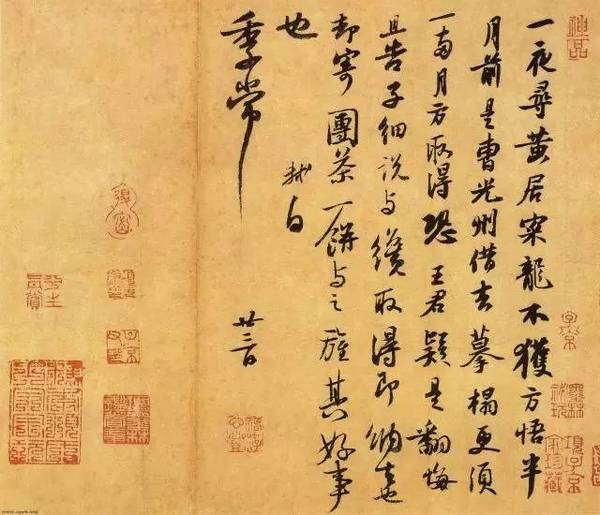 神品
一夜尋黄居寀龍不獲方悟半
月前是曹光州借去摹搨更須
一兩月方取得恐王君疑是翻悔
且告子細說與纔取得即納去也
却寄團茶一餅與之旌其好事
也
軾白
季常
廿三日
項子京家珍藏